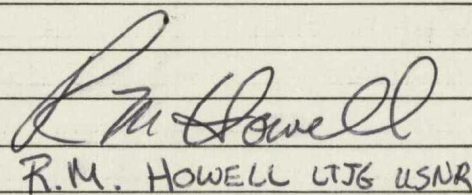 RM Howell
R.M. HOWELL LTJG USNR